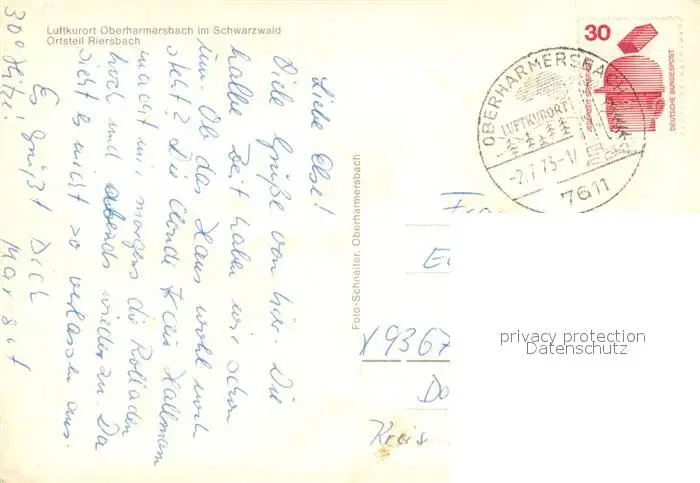 Luftkurort Oberharmersbach im Schwarzwald
Ortsteil Riersbach
Liebe Else!
Viele Grüße von hier. Die
halbe Zeit haben wir schon
um. Ob das Haus wohl noch
steht? Die Frau Hallmann
macht mir morgens die Rolladen
hoch und abends wieder zu. Da
sieht es nicht so verlassen aus.
Es grüßt Dich
Margot
30° Hitze!
Foto-Schnaiter, Oberharmersbach
30
DEUTSCHE BUNDESPOST
OBERHARMERSBACH
LUFTKURORT
-2.7.73-1
7611
X9367
Do
Kreis
privacy protection
Datenschutz